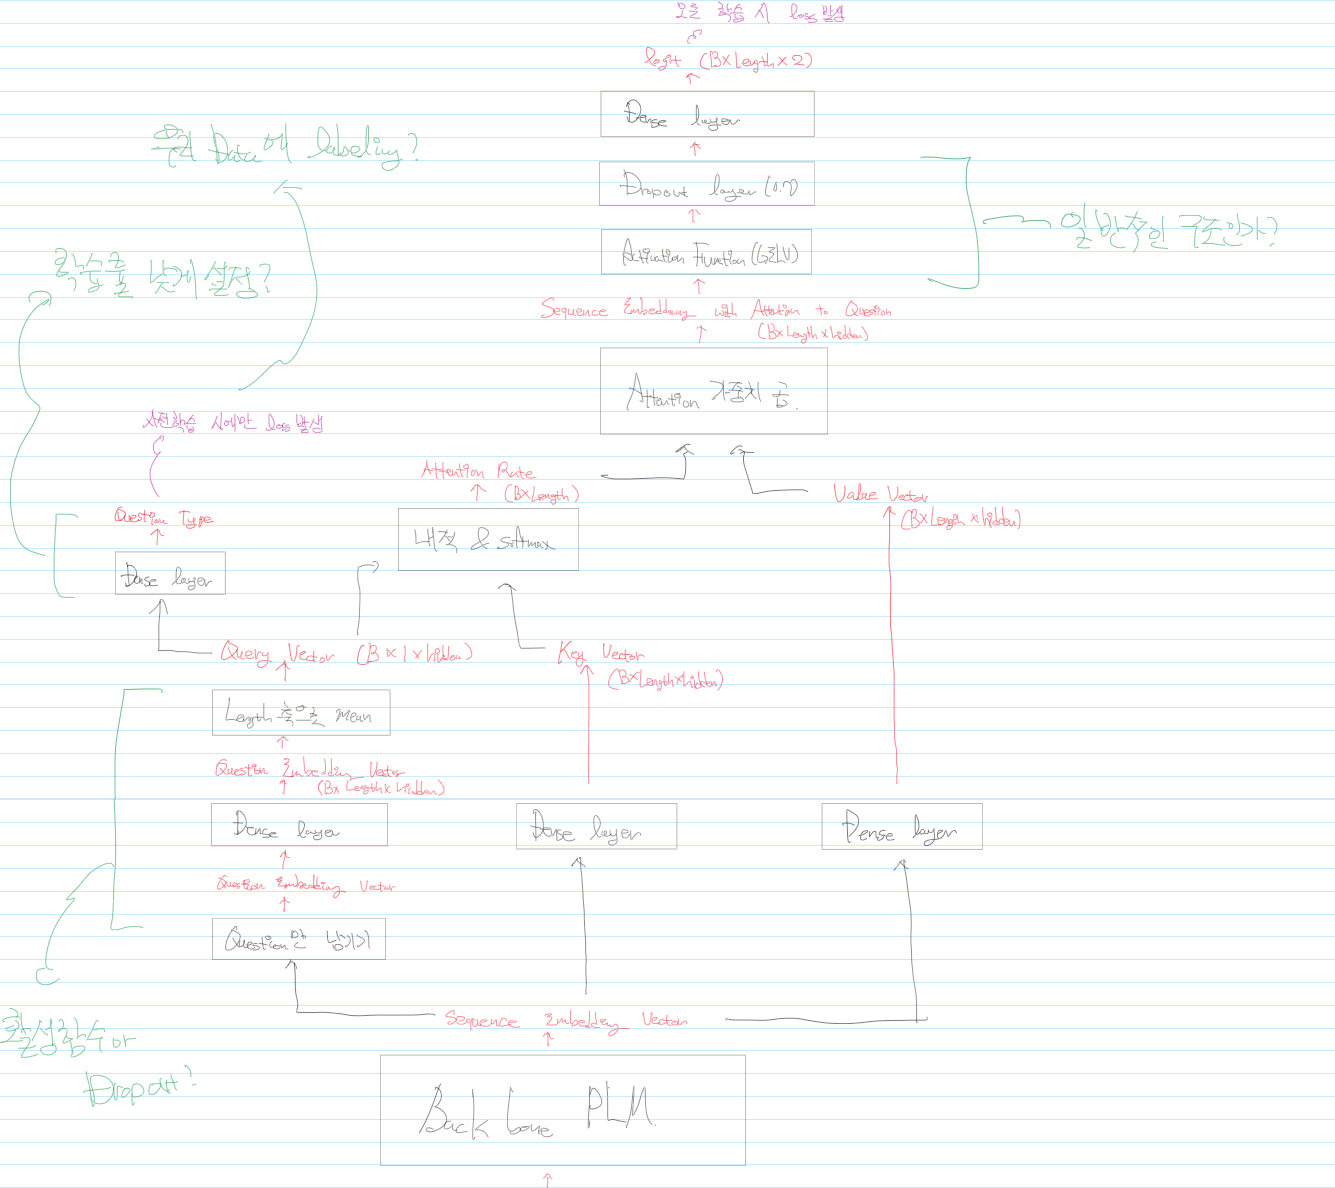 모든 학습 시 loss 발생
logit (B×Length×2)
Dense layer
우리 Data에 labeling?
Dropout layer (0.7)
일반적인 구조인가?
Activation Function (GELU)
학습률 낮게 설정?
Sequence Embedding with Attention to Question
(B×Length×hidden)
Attention 가중치 곱.
사전학습 시에만 loss 발생
Attention Rate
(B×Length)
Value Vector
(B×Length×hidden)
Question Type
내적 & softmax
Dense layer
Query Vector (B×1×hidden)
Key Vector
(B×Length×hidden)
Length 축으로 mean
Question Embedding Vector
(B×Length×hidden)
Dense layer
Dense layer
Dense layer
Question Embedding Vector
Question만 남기기
Sequence Embedding Vector
활성함수나
Dropout?
Back bone PLM.